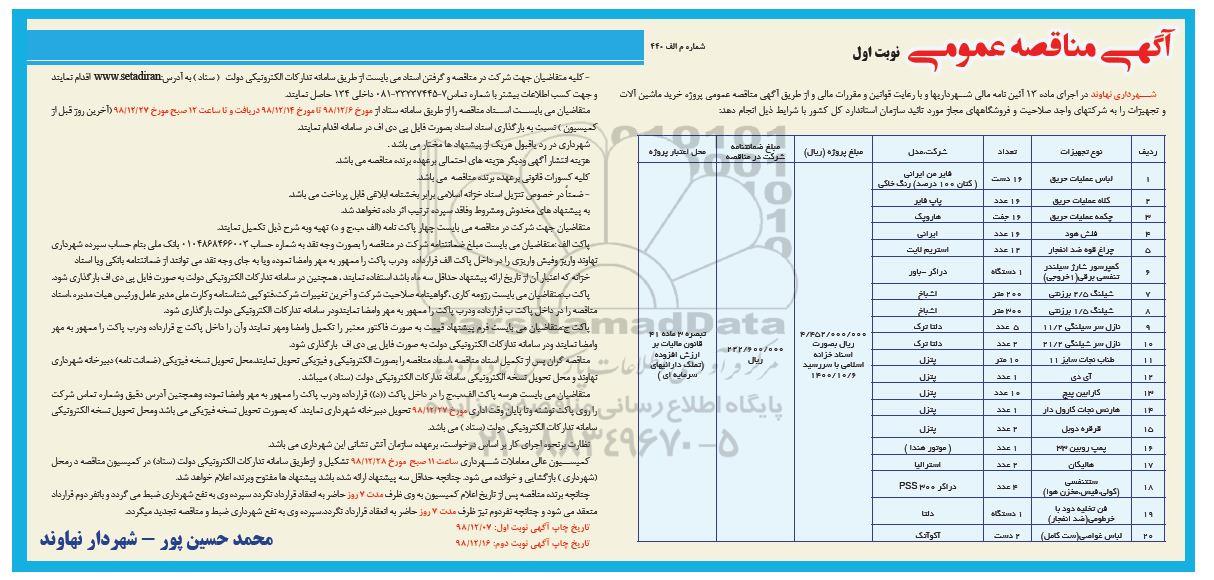 آگهی مناقصه عمومی نوبت اول
شماره م الف ۴۴۰
شـــهرداری نهاوند در اجرای ماده ۱۳ آئین نامه مالی شــهرداریها و با رعایت قوانین و مقررات مالی و از طریق آگهی مناقصه عمومی پروژه خرید ماشین آلات
و تجهیزات را به شرکتهای واجد صلاحیت و فروشگاههای مجاز مورد تائید سازمان استاندارد کل کشور با شرایط ذیل انجام دهد:
ردیف نوع تجهیزات شرکت،مدل تعداد مبلغ پروژه (ریال) مبلغ ضمانتنامه شرکت در مناقصه محل اعتبار پروژه
۱ لباس عملیات حریق فایر من ایرانی ( کتان ۱۰۰ درصد) رنگ خاکی ۱۶ دست
۲ کلاه عملیات حریق پاپ فایر ۱۶ عدد
۳ چکمه عملیات حریق هارویک ۱۶ جفت
۴ فلش هود ایرانی ۱۶ عدد
۵ چراغ قوه ضد انفجار استریم لایت ۱۲ عدد
۶ کمپرسور شارژ سیلندر تنفسی برقی(۱خروجی) دراگر -باور ۱ دستگاه
۷ شیلنگ ۲/۵ برزنتی اشباخ ۲۰۰ متر
۸ شیلنگ ۱/۵ برزنتی اشباخ ۳۰۰ متر
۹ نازل سر شیلنگی ۱۱/۲ دلتا ترک ۵ عدد
۱۰ نازل سر شیلنگی ۲۱/۲ دلتا ترک ۲ عدد
۱۱ طناب نجات سایز ۱۱ پتزل ۱۰ متر
۱۲ آی دی پتزل ۱ عدد
۱۳ کارابین پیچ پتزل ۱۰ عدد
۱۴ هارنس نجات کارول دار پتزل ۱ عدد
۱۵ قرقره دوبل پتزل ۲ عدد
۱۶ پمپ روبین ۳۳ ( موتور هندا ) ۱ عدد
۱۷ هالیگان استرالیا ۲ عدد
۱۸ ست‌تنفسی (کولی،فیس،مخزن هوا) دراگر PSS ۳۰۰ ۴ عدد
۱۹ فن تخلیه دود با خرطومی(ضد انفجار) دلتا ۱ دستگاه
۲۰ لباس غواصی(ست کامل) آکوآتک ۲ دست
۴/۴۵۲/۰۰۰/۰۰۰ ریال بصورت اسناد خزانه اسلامی با سررسید ۱۴۰۰/۱۰/۶
۲۲۲/۶۰۰/۰۰۰ ریال
تبصره ۳ ماده ۴۱ قانون مالیات بر ارزش افزوده (تملک دارائیهای سرمایه ای )
- کلیه متقاضیان جهت شرکت در مناقصه و گرفتن اسناد می بایست از طریق سامانه تدارکات الکترونیکی دولت ( ستاد ) به آدرس:www.setadiran اقدام نمایند
و جهت کسب اطلاعات بیشتر با شماره تماس۷-۳۳۲۳۷۴۴۵-۰۸۱ داخلی ۱۳۴ حاصل نمایند.
متقاضیان می بایســت اســناد مناقصه را از طریق سامانه ستاد از مورخ ۹۸/۱۲/۶ تا مورخ ۹۸/۱۲/۱۴ دریافت و تا ساعت ۱۲ صبح مورخ ۹۸/۱۲/۲۷ (آخرین روز قبل از
کمیسیون ) نسبت به بارگذاری اسناد اسناد بصورت فایل پی دی اف در سامانه اقدام نمایند.
شهرداری در رد یاقبول هریک از پیشنهاد ها مختار می باشد .
هزیته انتشار آگهی ودیگر هزینه های احتمالی برعهده برنده مناقصه می باشد.
کلیه کسورات قانونی برعهده برنده مناقصه می باشد.
- ضمتاً در خصوص تنزیل اسناد خزانه اسلامی برابر بخشنامه ابلاغی قابل پرداخت می باشد.
به پیشنهاد های مخدوش ومشروط وفاقد سپرده ترتیب اثر داده نخواهد شد.
متقاضیان جهت شرکت در مناقصه می بایست چهار پاکت نامه (الف ،ب،ج و د) تهیه وبه شرح ذیل تکمیل نمایند.
پاکت الف :متقاضیان می بایست مبلغ ضمانتنامه شرکت در مناقصه را بصورت وجه نقد به شماره حساب ۰۱۰۴۸۶۸۴۶۶۰۰۳ بانک ملی بنام حساب سپرده شهرداری
نهاوند واریز وفیش واریزی را در داخل پاکت الف قرارداده ودرب پاکت را ممهور به مهر وامضا نموده ویا به جای وجه نقد می توانند از ضمانتنامه بانکی ویا اسناد
خزانه که اعتبار آن از تاریخ ارائه پیشنهاد حداقل سه ماه باشد استفاده نمایند ، همچنین در سامانه تدارکات الکترونیکی دولت به صورت فایل پی دی اف بارگذاری شود.
پاکت ب:متقاضیان می بایست رزومه کاری ،گواهینامه صلاحیت شرکت و آخرین تغییرات شرکت،فتوکپی شناسنامه وکارت ملی مدیر عامل ورئیس هیات مدیره ،اسناد
مناقصه را در داخل پاکت ب قرارداده ودرب پاکت را ممهور به مهر وامضا نمایندودر سامانه تدارکات الکترونیکی دولت بارگذاری شود.
پاکت ج:متقاضیان می بایست فرم پیشنهاد قیمت به صورت فاکتور معتبر را تکمیل وامضا ومهر نمایند وآن را داخل پاکت ج قرارداده ودرب پاکت را ممهور به مهر
وامضا نمایند ودر سامانه تدارکات الکترونیکی دولت به صورت فایل پی دی اف بارگذاری شود.
مناقصه گران پس از تکمیل اسناد مناقصه ،اسناد مناقصه را بصورت الکترونیکی و فیزیکی تحویل نمایند.محل تحویل نسخه فیزیکی (ضمانت نامه) دبیرخانه شهرداری
نهاوند و محل تحویل نسخه الکترونیکی سامانه تدارکات الکترونیکی دولت (ستاد ) میباشد .
متقاضیان می بایست هرسه پاکت الف،ب،ج را در داخل پاکت ((د)) قرارداده ودرب پاکت را ممهور به مهر وامضا نموده وهمچنین آدرس دقیق وشماره تماس شرکت
را روی پاکت نوشته وتا پایان وقت اداری مورخ ۹۸/۱۲/۲۷ تحویل دبیرخانه شهرداری نمایند. که بصورت تحویل نسخه فیزیکی می باشد ومحل تحویل نسخه الکترونیکی
سامانه تدارکات الکترونیکی دولت (ستاد ) می باشد.
نظارت برنحوه اجرای کار بر اساس درخواست، برعهده سازمان آتش نشانی این شهرداری می باشد.
کمیســیون عالی معاملات شــهرداری ساعت ۱۱ صبح مورخ ۹۸/۱۲/۲۸ تشکیل و ازطریق سامانه تدارکات الکترونیکی دولت (ستاد) در کمیسیون مناقصه درمحل
(شهرداری ) بازگشایی و خوانده می شود. چنانچه حداقل سه پیشنهاد ارائه شده باشد پیشنهاد ها مفتوح وبرنده اعلام خواهد شد.
چنانچه برنده مناقصه پس از تاریخ اعلام کمیسیون به وی ظرف مدت ۷ روز حاضر به انعقاد قرارداد نگردد سپرده وی به نفع شهرداری ضبط می گردد و بانفر دوم قرارداد
منعقد می شود و چنانچه نفردوم نیز ظرف مدت ۷ روز حاضر به انعقاد قرارداد نگردد،سپرده وی به نفع شهرداری ضبط و مناقصه تجدید میگردد.
تاریخ چاپ آگهی نوبت اول: ۹۸/۱۲/۰۷
تاریخ چاپ آگهی نوبت دوم: ۹۸/۱۲/۱۶
محمد حسین پور – شهردار نهاوند
ParsNamadData
پایگاه اطلاع رسانی مناقصه و مزایده
۰۲۱-۸۸۳۴۹۶۷۰-۵